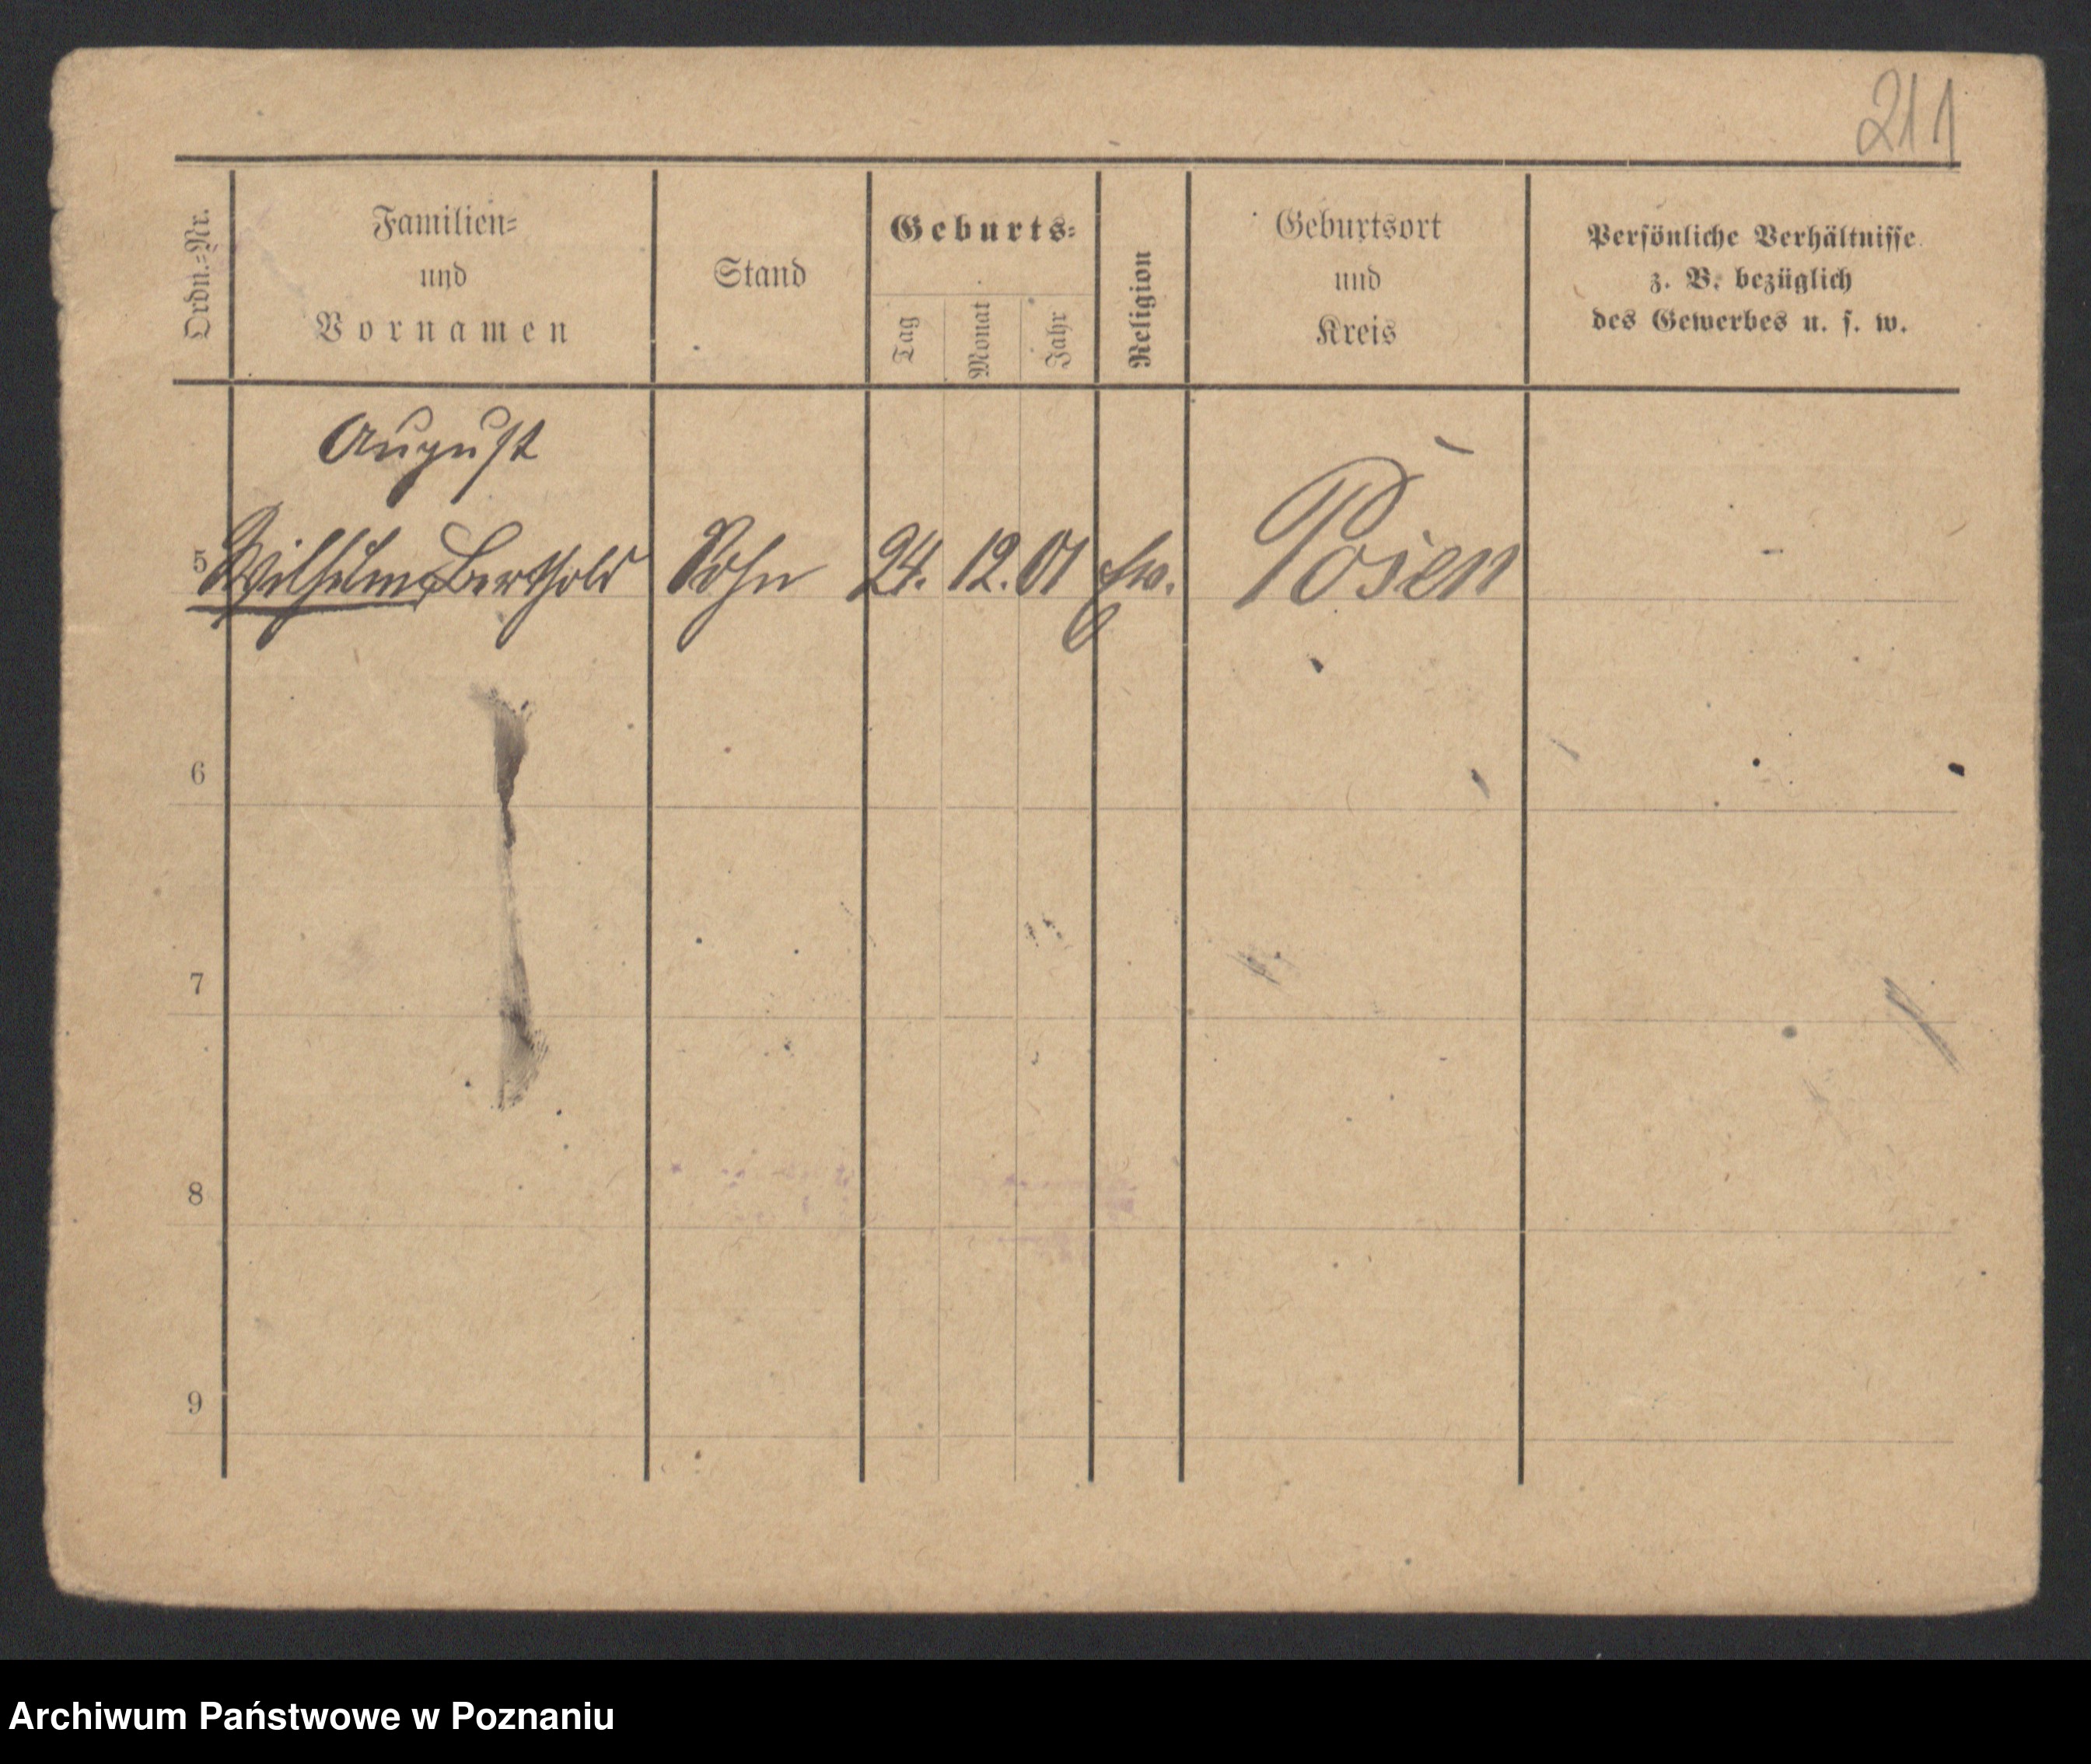 211
Ordn.-Nr.
Familien-
und
Vornamen
Stand
Geburts-
Tag
Monat
Jahr
Religion
Geburtsort
und
Kreis
Persönliche Verhältnisse
z. B. bezüglich
des Gewerbes u. s. w.
August
5 Wilhelm Berthold Sohn 24. 12. 01 Ev. Posen -
6
7
8
9
Archiwum Państwowe w Poznaniu